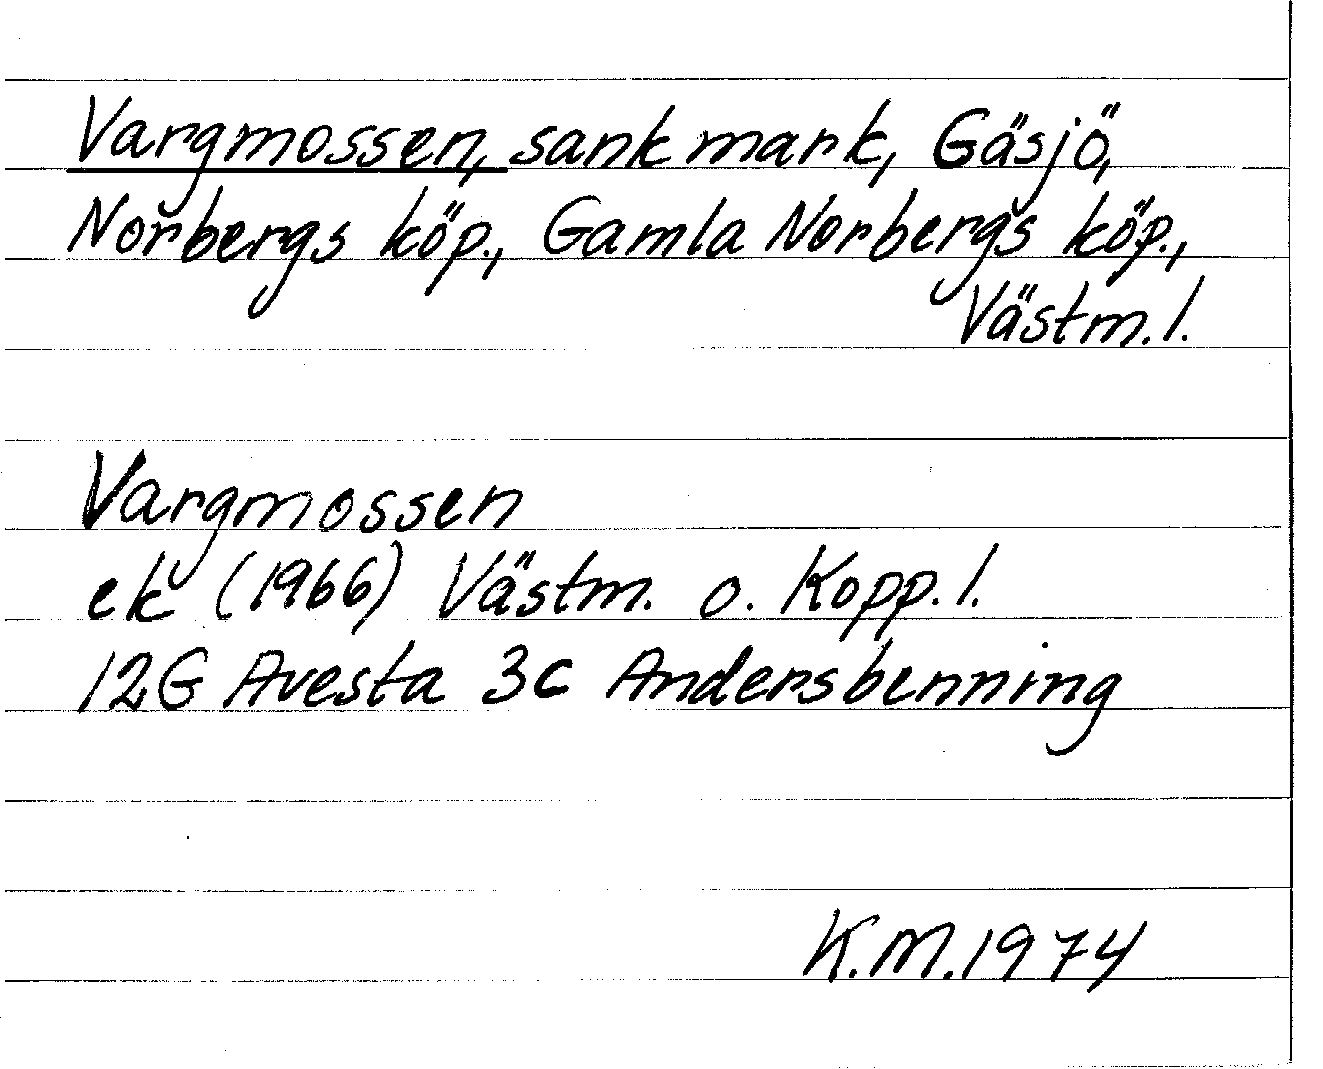 Vargmossen, sank mark, Gäsjö,
Norbergs köp., Gamla Norbergs köp.,
Västm. l.
Vargmossen
ek (1966) Västm. o. Kopp. l.
12G Avesta 3c Andersbenning
K.M. 1974